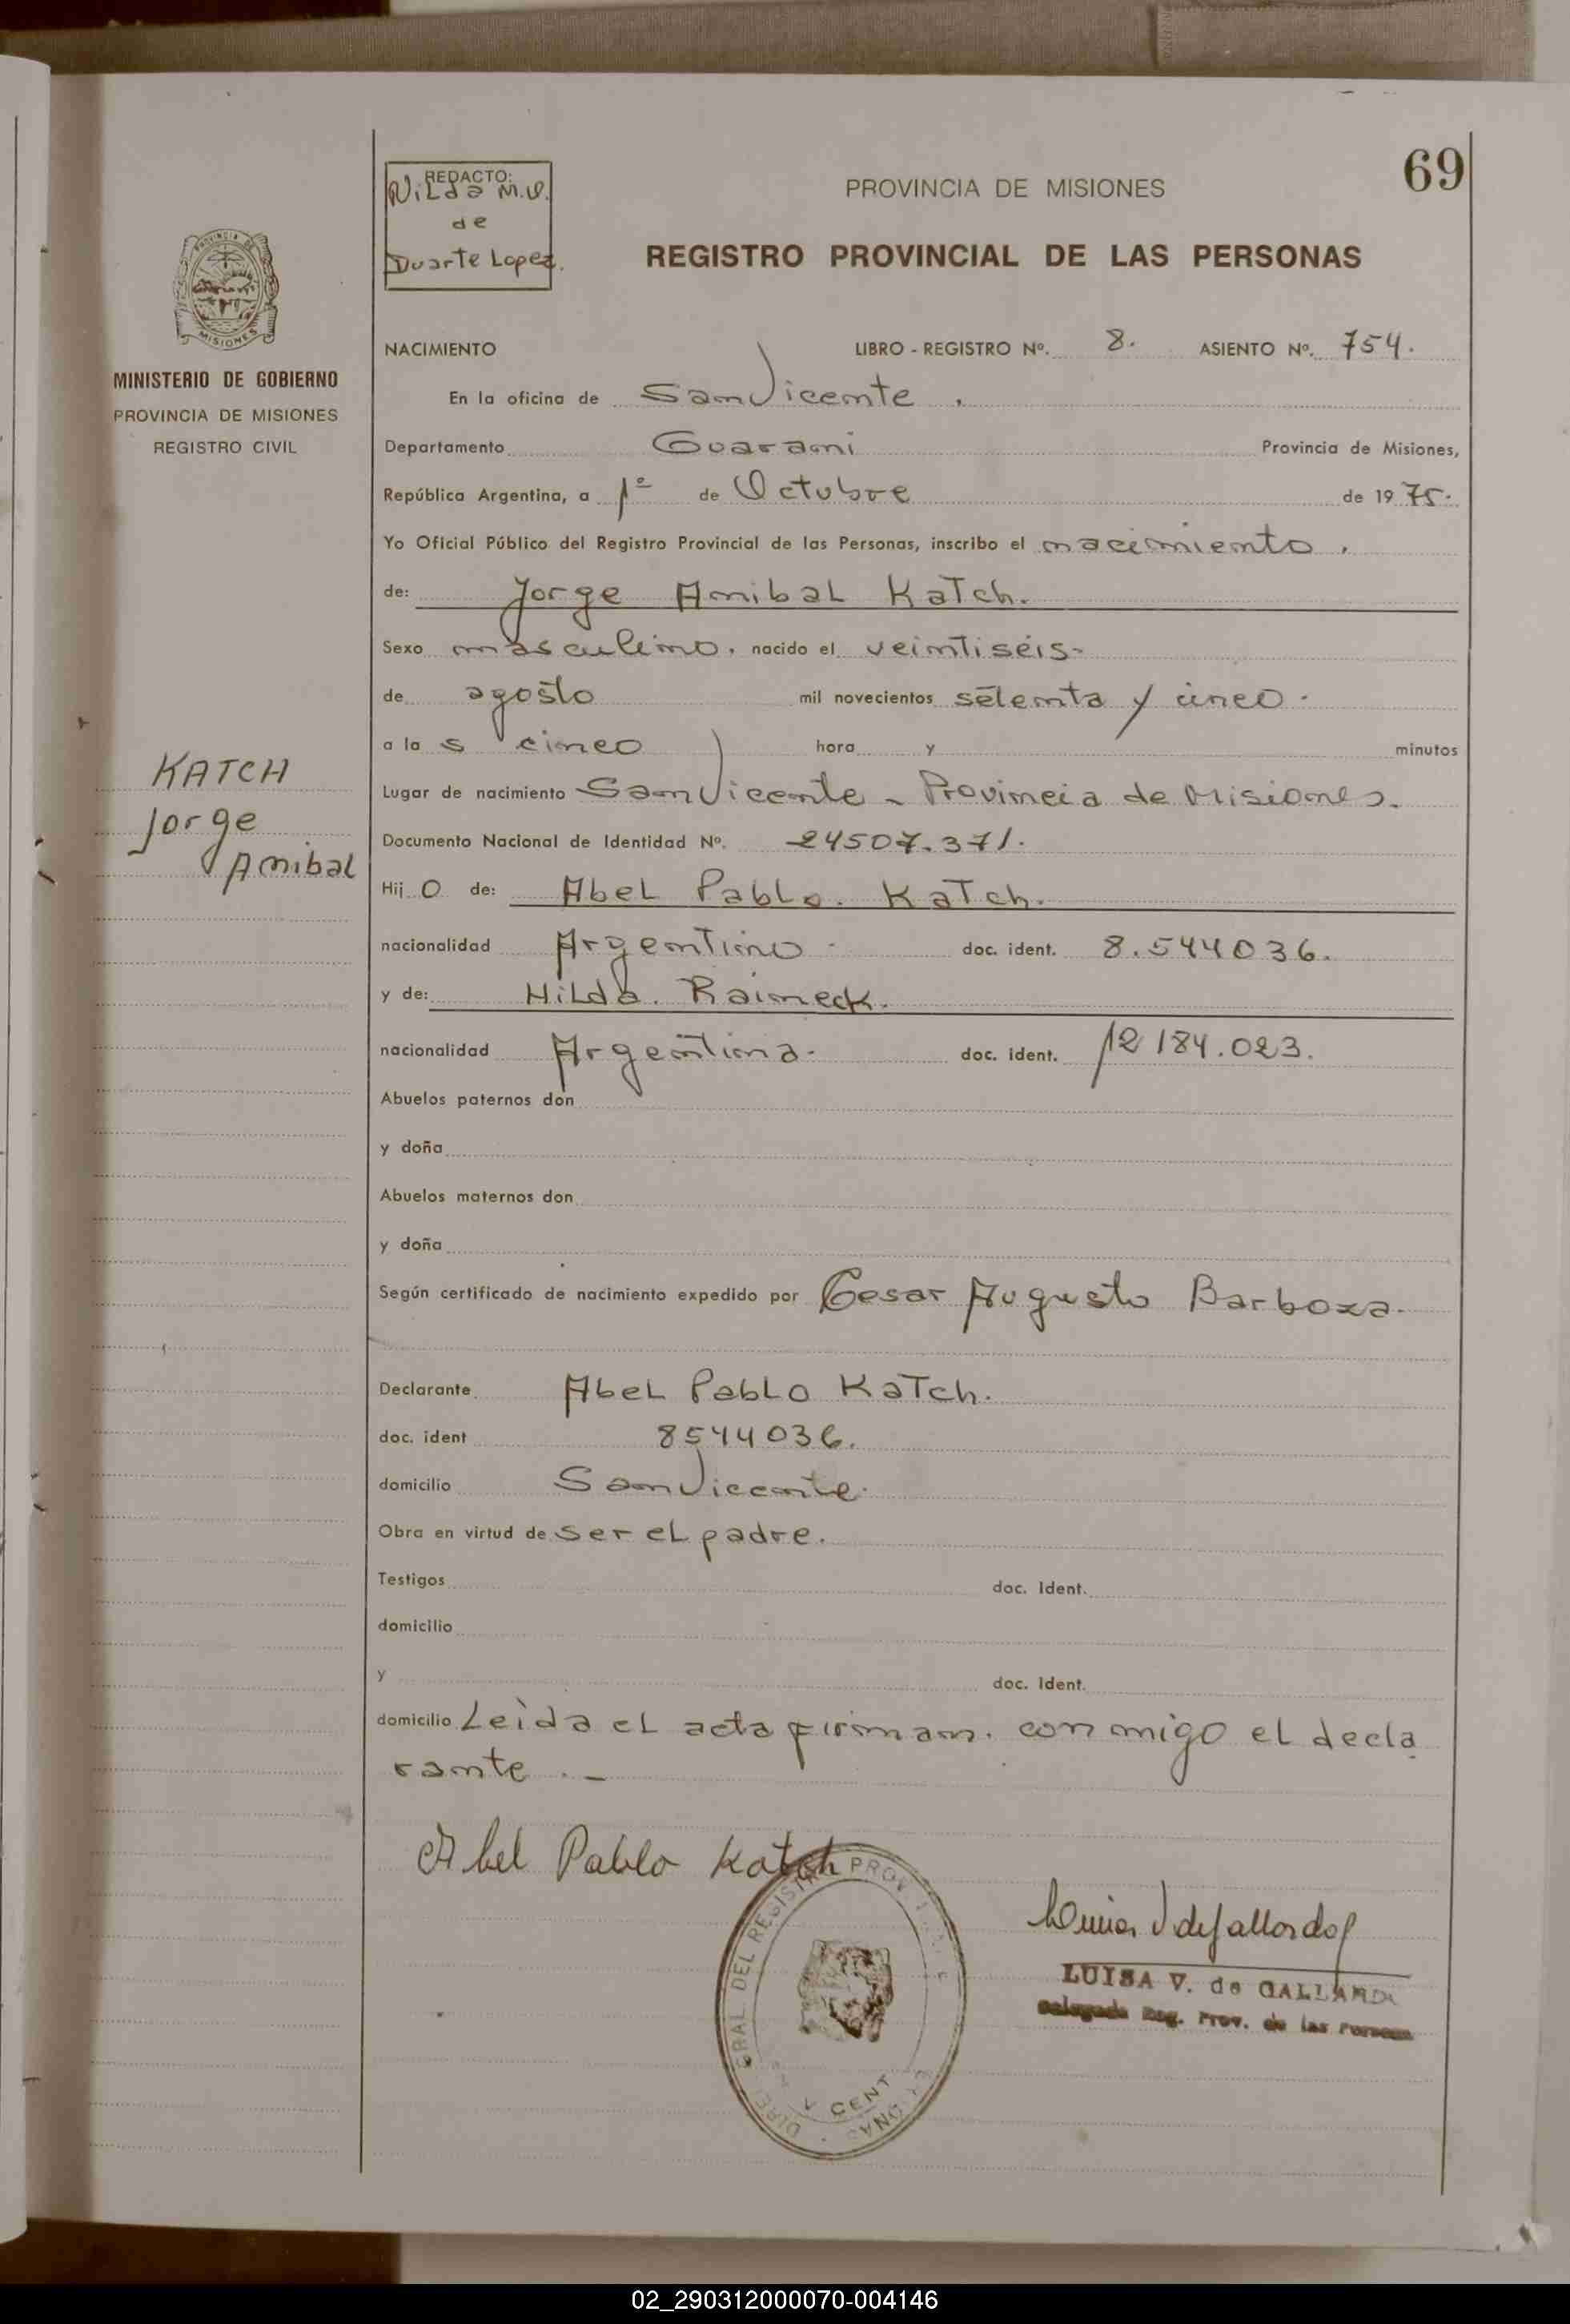 69
REDACTO:
Nilda M.V.
de
Duarte Lopez.
PROVINCIA DE MISIONES
REGISTRO PROVINCIAL DE LAS PERSONAS
PROVINCIA DE
MISIONES
MINISTERIO DE GOBIERNO
PROVINCIA DE MISIONES
REGISTRO CIVIL
KATCH
Jorge
Anibal
NACIMIENTO LIBRO - REGISTRO Nº. 8. ASIENTO Nº. 754.
En la oficina de San Vicente.
Departamento Guarani Provincia de Misiones,
República Argentina, a 1º de Octubre de 1975.
Yo Oficial Público del Registro Provincial de las Personas, inscribo el nacimiento.
de: Jorge Anibal Katch.
Sexo masculino. nacido el veintiseis-
de agosto mil novecientos setenta y cinco.
a la s cinco hora y minutos
Lugar de nacimiento San Vicente - Provincia de Misiones.
Documento Nacional de Identidad Nº. 24507.371.
Hij o de: Abel Pablo. Katch.
nacionalidad Argentino. doc. ident. 8.544036.
y de: Hilda. Raineck.
nacionalidad Argentina. doc. ident. 12184.023.
Abuelos paternos don
y doña
Abuelos maternos don
y doña
Según certificado de nacimiento expedido por Cesar Augusto Barboza.
Declarante Abel Pablo Katch.
doc. ident 8544036.
domicilio San Vicente.
Obra en virtud de ser el padre.
Testigos doc. Ident.
domicilio
y doc. Ident.
domicilio Leida el acta firman. conmigo el decla
rante . -
Abel Pablo Katch
Luisa V de Gallardo
LUISA V. de GALLARDO
Delegada Reg. Prov. de las Personas
GRAL DEL REGISTRO PROV
02_290312000070-004146